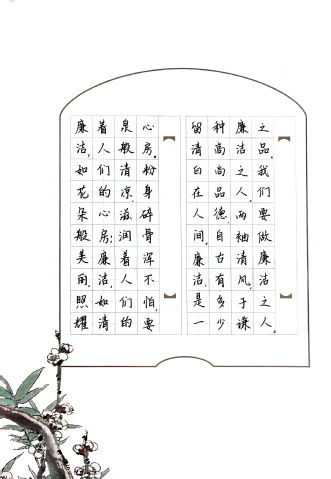 廉洁,如花朵般美丽,照耀
着人们的心房;廉洁,如清
泉般清凉,滋润着人们的
心房。粉身碎骨浑不怕,要
留清白在人间,廉洁,是一
种高尚品德,自古有多少
廉洁之人,两袖清风,于谦
之品,我们要做廉洁之人。